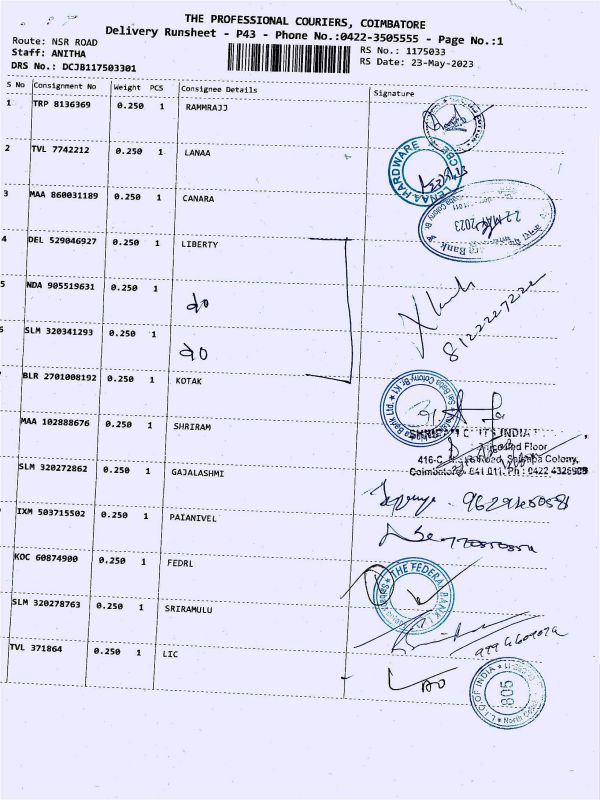 THE PROFESSIONAL COURIERS, COIMBATORE
Delivery Runsheet - P43 - Phone No.:0422-3505555 - Page No.:1
Route: NSR ROAD
RS No.: 1175033
Staff: ANITHA
RS Date: 23-May-2023
DRS No.: DCJB117503301
S No Consignment No Weight PCS Consignee Details Signature
1 TRP 8136369 0.250 1 RAMMRAJJ
2 TVL 7742212 0.250 1 LANAA
LENAA HARDWARE CBE
3 MAA 860031189 0.250 1 CANARA
22 MAY 2023
4 DEL 529046927 0.250 1 LIBERTY
5 NDA 905519631 0.250 1 do
8122227222
SLM 320341293 0.250 1 do
BLR 2701008192 0.250 1 KOTAK
MAA 102888676 0.250 1 SHRIRAM
INDIA
Floor
Colony,
Coimbatore 641 011. Ph : 0422 4326909
SLM 320272862 0.250 1 GAJALASHMI
IXM 503715502 0.250 1 PAIANIVEL
KOC 60874900 0.250 1 FEDRL
THE FEDERAL BANK
SLM 320278763 0.250 1 SRIRAMULU
TVL 371864 0.250 1 LIC
L.I.C OF INDIA
805